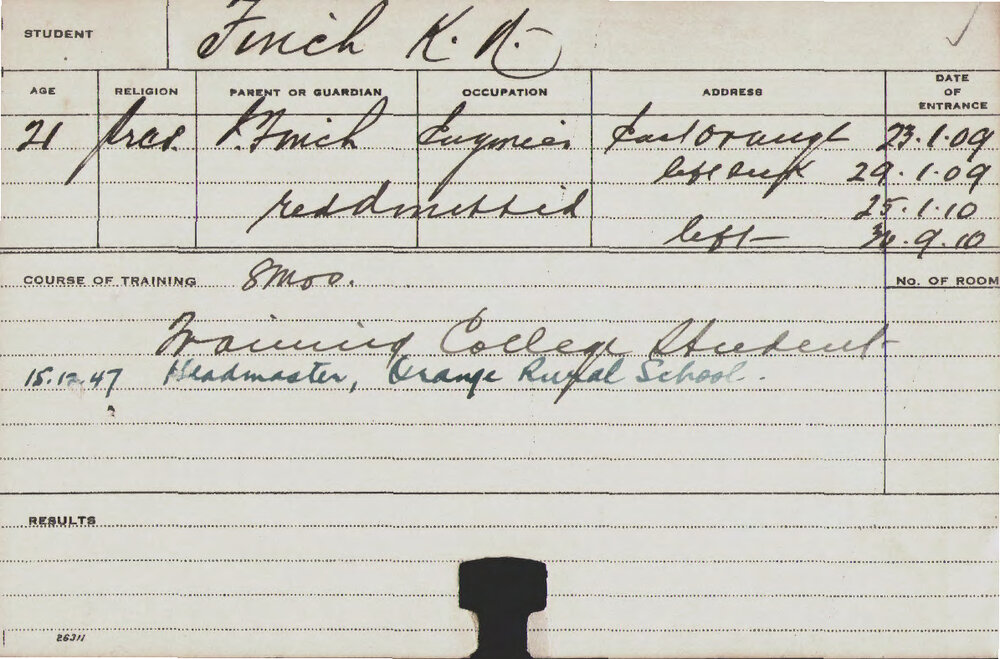 STUDENT Finch K. R.
AGE RELIGION PARENT OR GUARDIAN OCCUPATION ADDRESS DATE OF ENTRANCE
21 Pres. P. Finch East Orange 23.1.09
left 29.1.09
readmitted 25.1.10
left .9.10
COURSE OF TRAINING 8 mos. No. OF ROOM
Training College Student
15.12.47 Headmaster, Orange Rural School.
RESULTS
26311